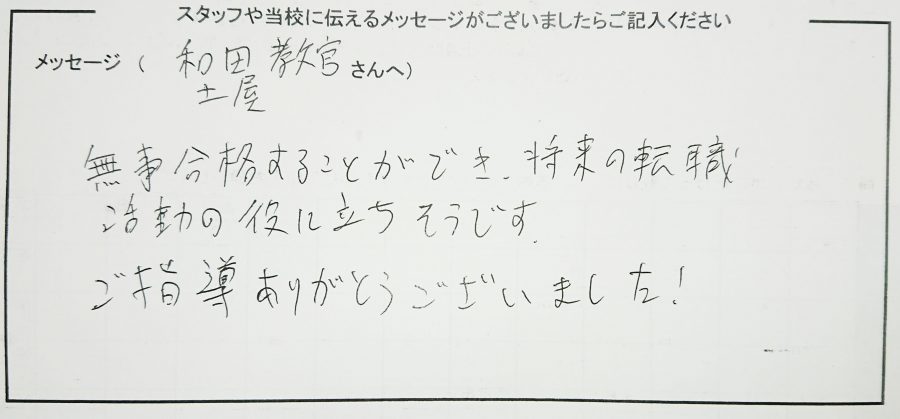 スタッフや当校に伝えるメッセージがございましたらご記入ください
メッセージ ( 和田 教官 さんへ)
土屋
無事合格することができ、将来の転職
活動の役に立ちそうです。
ご指導ありがとうございました!